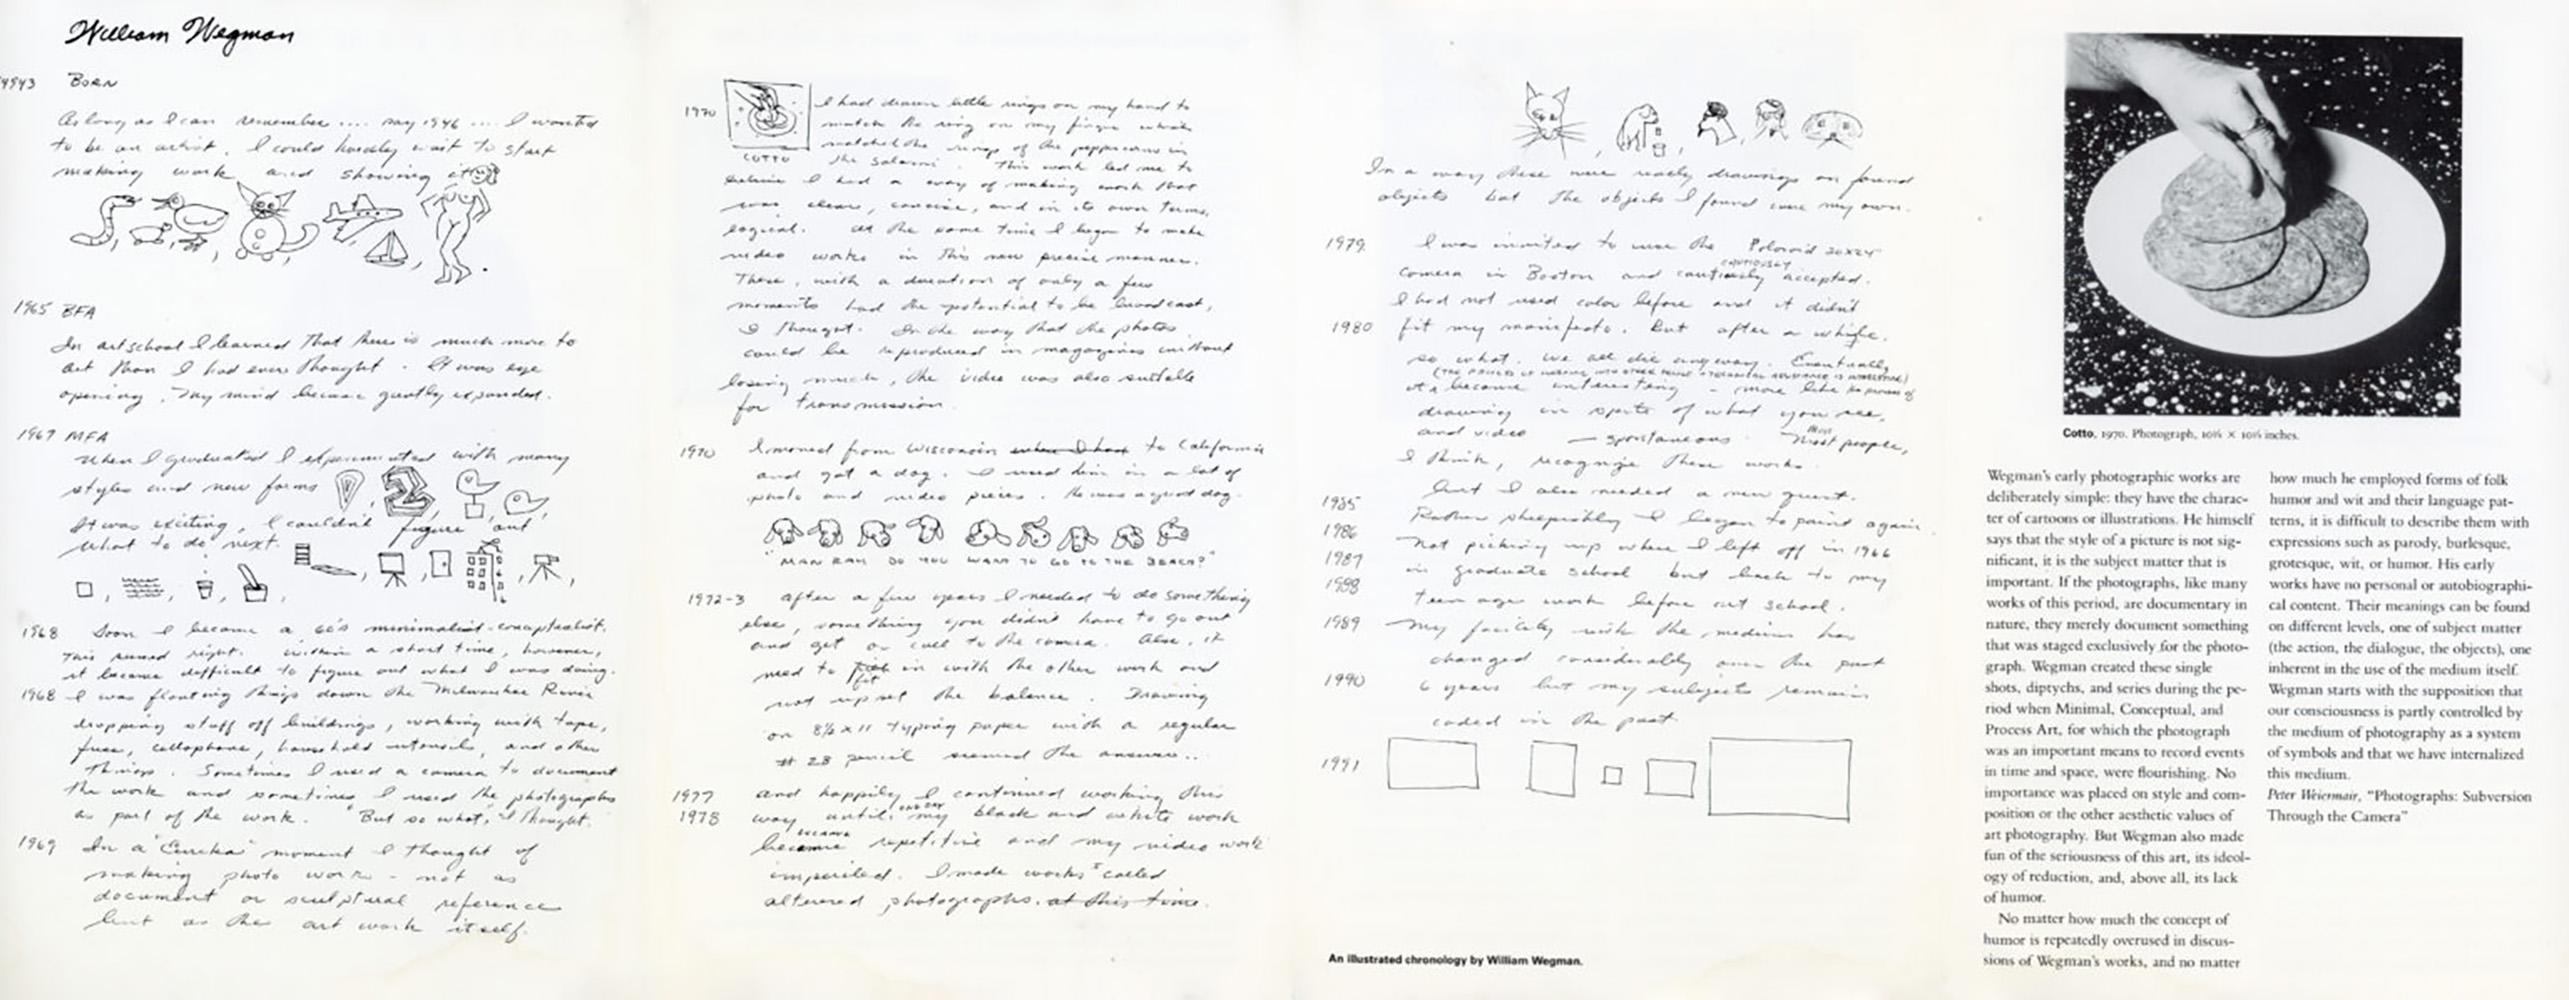 William Wegman
1943 BORN
As long as I can remember .... say 1946 .... I wanted
to be an artist. I could hardly wait to start
making work and showing it
1965 BFA
In art school I learned that there is much more to
art than I had ever thought. It was eye
opening. My mind became greatly expanded.
1967 MFA
When I graduated I experimented with many
styles and new forms
It was exciting, I couldn't figure out
what to do next.
1968 Soon I became a 60's minimalist-conceptualist.
This seemed right. Within a short time, however,
it became difficult to figure out what I was doing.
1968 I was floating things down the Milwaukee River
dropping stuff off buildings, working with tape,
fuses, cellophane, household utensils, and other
things. Sometimes I used a camera to document
the work and sometimes I used the photographs
as part of the work. "But so what," I thought.
1969 In a "Eureka" moment I thought of
making photo work - not as
document or sculptural reference
but as the art work itself.
1970 I had drawn little rings on my hand to
match the ring on my finger which
matched the rings of the peppercorns in
COTTO the salami. This work led me to
believe I had a way of making work that
was clear, concise, and in its own terms,
logical. At the same time I began to make
video works in this new precise manner.
These, with a duration of only a few
moments had the potential to be broadcast,
I thought. In the way that the photos
could be reproduced in magazines without
losing much, the video was also suitable
for transmission.
1970 I moved from Wisconsin when I had to California
and got a dog. I used him in a lot of
photo and video pieces. He was a good dog.
"MAN RAY DO YOU WANT TO GO TO THE BEACH?"
1972-3 After a few years I needed to do something
else, something you didn't have to go out
and get or call to the camera. Also, it
need to fit in with the other work and
not upset the balance. Drawing
on 8½ x 11 typing paper with a regular
# 2B pencil seemed the answer...
1977 and happily I continued working this
1978 way until my black and white work
became repetitive and my video work
imperiled. I made works called
altered photographs. at this time.
In a way these were really drawings on found
objects but the objects I found were my own.
1979 I was invited to use the Polaroid 20x24
CAUTIOUSLY
camera in Boston and cautiously accepted.
I had not used color before and it didn't
1980 fit my manifesto. But after a while,
so what. We all die anyway. Eventually
it became interesting - more like the process of
drawing in spite of what you see,
and video — spontaneous. Most people,
I think, recognize these works.
1985 but I also needed a new quest.
1986 Rather sheepishly I began to paint again
1987 not picking up where I left off in 1966
in graduate school but back to my
1988 teen age work before art school.
1989 My facility with the medium has
changed considerably over the past
1990 6 years but my subjects remain
coded in the past.
1991
An illustrated chronology by William Wegman.
Cotto, 1970. Photograph, 10⅝ × 10⅝ inches.
Wegman's early photographic works are
deliberately simple: they have the charac-
ter of cartoons or illustrations. He himself
says that the style of a picture is not sig-
nificant, it is the subject matter that is
important. If the photographs, like many
works of this period, are documentary in
nature, they merely document something
that was staged exclusively for the photo-
graph. Wegman created these single
shots, diptychs, and series during the pe-
riod when Minimal, Conceptual, and
Process Art, for which the photograph
was an important means to record events
in time and space, were flourishing. No
importance was placed on style and com-
position or the other aesthetic values of
art photography. But Wegman also made
fun of the seriousness of this art, its ideol-
ogy of reduction, and, above all, its lack
of humor.
No matter how much the concept of
humor is repeatedly overused in discus-
sions of Wegman's works, and no matter
how much he employed forms of folk
humor and wit and their language pat-
terns, it is difficult to describe them with
expressions such as parody, burlesque,
grotesque, wit, or humor. His early
works have no personal or autobiographi-
cal content. Their meanings can be found
on different levels, one of subject matter
(the action, the dialogue, the objects), one
inherent in the use of the medium itself.
Wegman starts with the supposition that
our consciousness is partly controlled by
the medium of photography as a system
of symbols and that we have internalized
this medium.
Peter Weiermair, "Photographs: Subversion
Through the Camera"